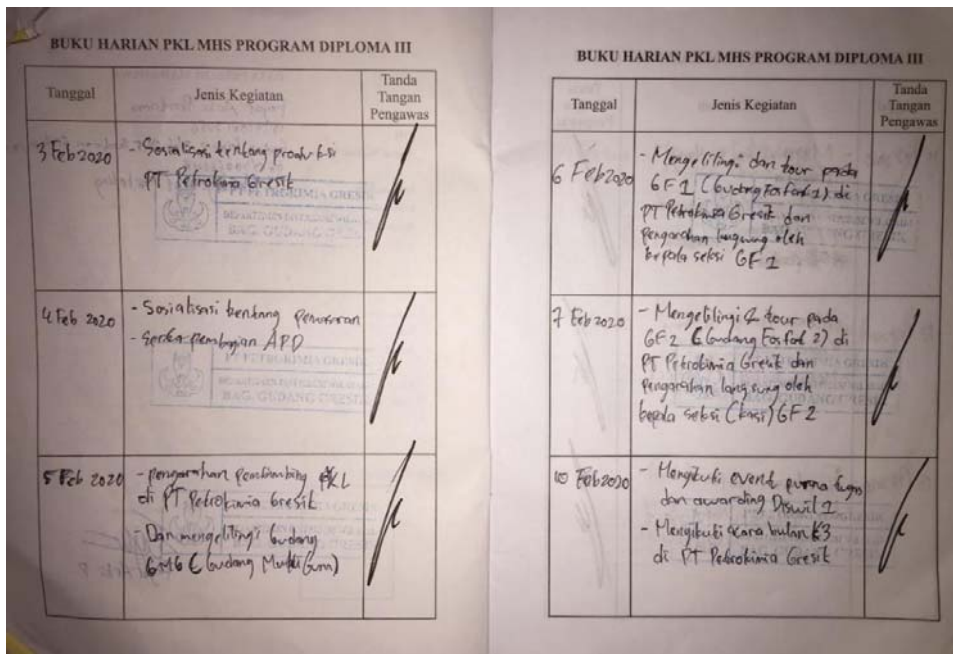 BUKU HARIAN PKL MHS PROGRAM DIPLOMA III
Tanggal
Jenis Kegiatan
Tanda
Tangan
Pengawas
3 Feb 2020
- Sosialisasi tentang produksi
PT Petrokimia Gresik
4 Feb 2020
- Sosialisasi tentang pemasaran
- Serta pembagian APD
5 Feb 2020
- pengarahan pembimbing PKL
di PT Petrokimia Gresik
- Dan mengelilingi Gudang
GMG (Gudang Multi Guna)
BUKU HARIAN PKL MHS PROGRAM DIPLOMA III
Tanggal
Jenis Kegiatan
Tanda
Tangan
Pengawas
6 Feb 2020
- Mengelilingi dan tour pada
GF1 (Gudang Fosfat 1) di
PT Petrokimia Gresik dan
Pengarahan langsung oleh
kepala seksi GF 1
7 Feb 2020
- Mengelilingi & tour pada
GF2 (Gudang Fosfat 2) di
PT Petrokimia Gresik dan
Pengarahan langsung oleh
kepala seksi (kasi) GF 2
10 Feb 2020
- Mengikuti event purna tugas
dan awarding Diswil 2
- Mengikuti acara bulan K3
di PT Petrokimia Gresik